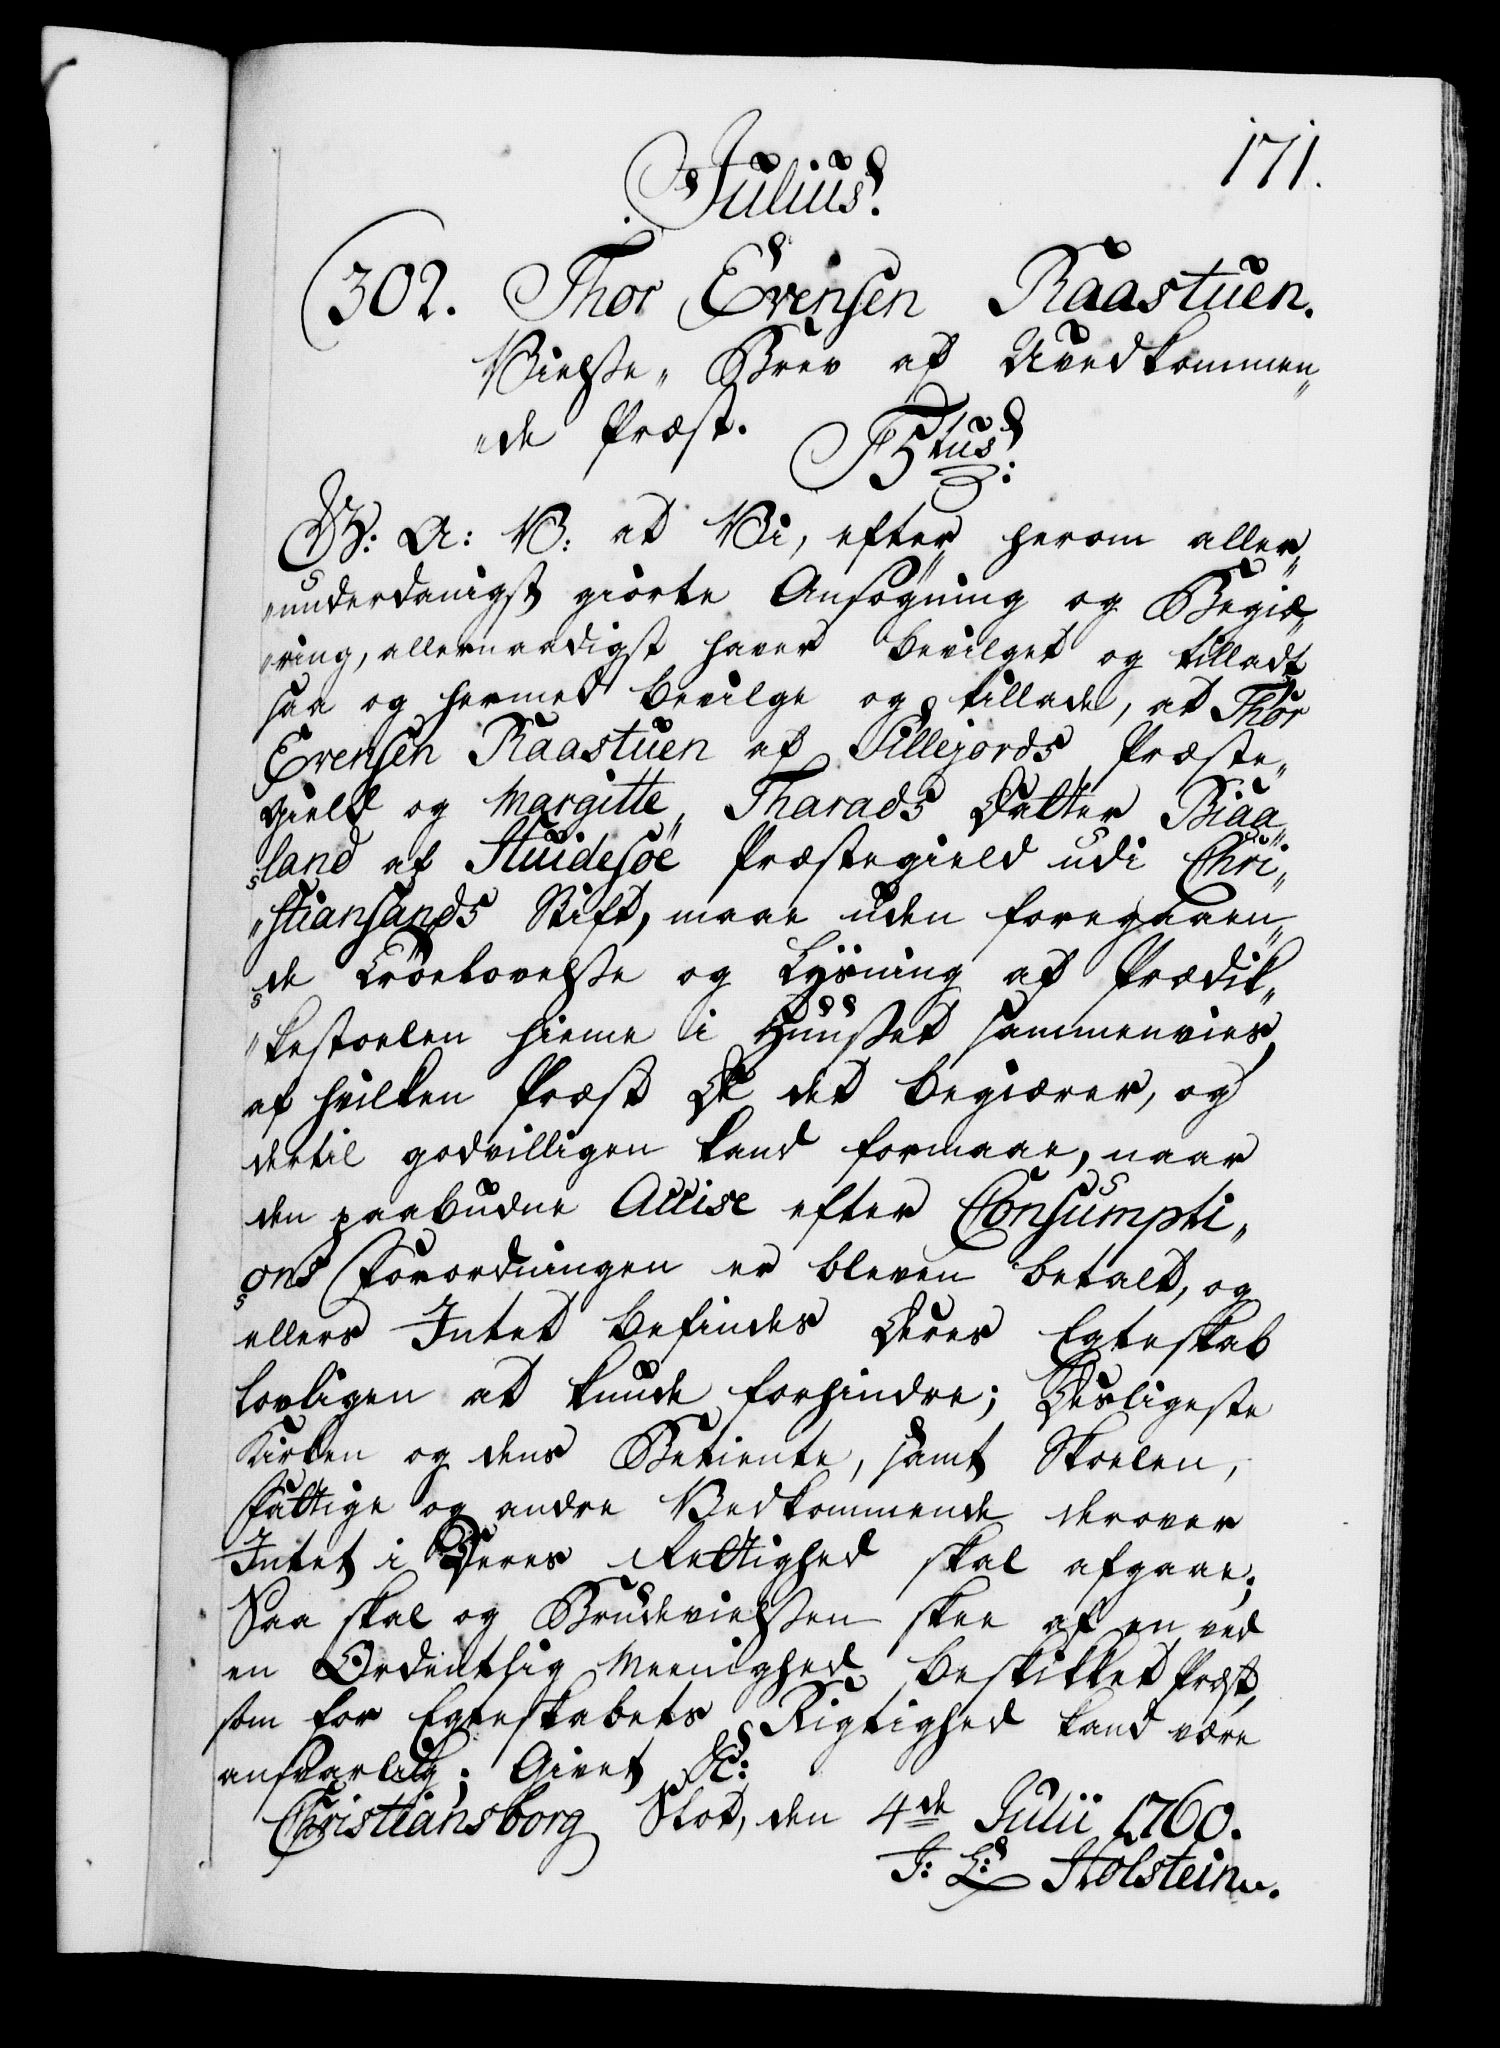 171.
Julius.
302. Thor Evensen Raastuen.
Vielsse„ Brev af Uvedkommen„
„de Præst.
F5tus:
G: A: V: at Vi, efter herom aller„
„underdanigst giorte Ansøgning og Begiæ„
„ring, allernaadigst haver bevilget og tilladt
saa og hermed bevilge og tillade, at Thor
Evensen Raastuen af Sillejords Præste„
gield og Margitte„ Tharads Datter Biaa„
„land af Huidesöe Præstegield udi Chri„
„stiansands Stift, maae uden foregaaen„
„de Troelovelsse og Lysning af Prædik„
„kestoelen hieme i Huusset sammenvies,
af hvilken Præst De det begiærer, og
dertil godvilligen kand formaae, naar
den paabudne Accise efter Consumpti„
„ons Forordningen er bleven betalt, og
ellers Intet befindes Deres Egteskab
lovligen at kunde forhindre; Desligeste
Kirken og dens Betiente, samt Skoelen,
Fattige og andre Vedkommende derover
Intet i Deres Rettighed skal afgaae;
Saa skal og Brudevielssen skee af en ved
en Ordentlig Meenighed beskikket Præst,
som for Egteskabets Rigtighed kand være
ansvarlig; Givet &c:
Christiansborg Slot, den 4de Julii 1760.
J: L: Holstein.